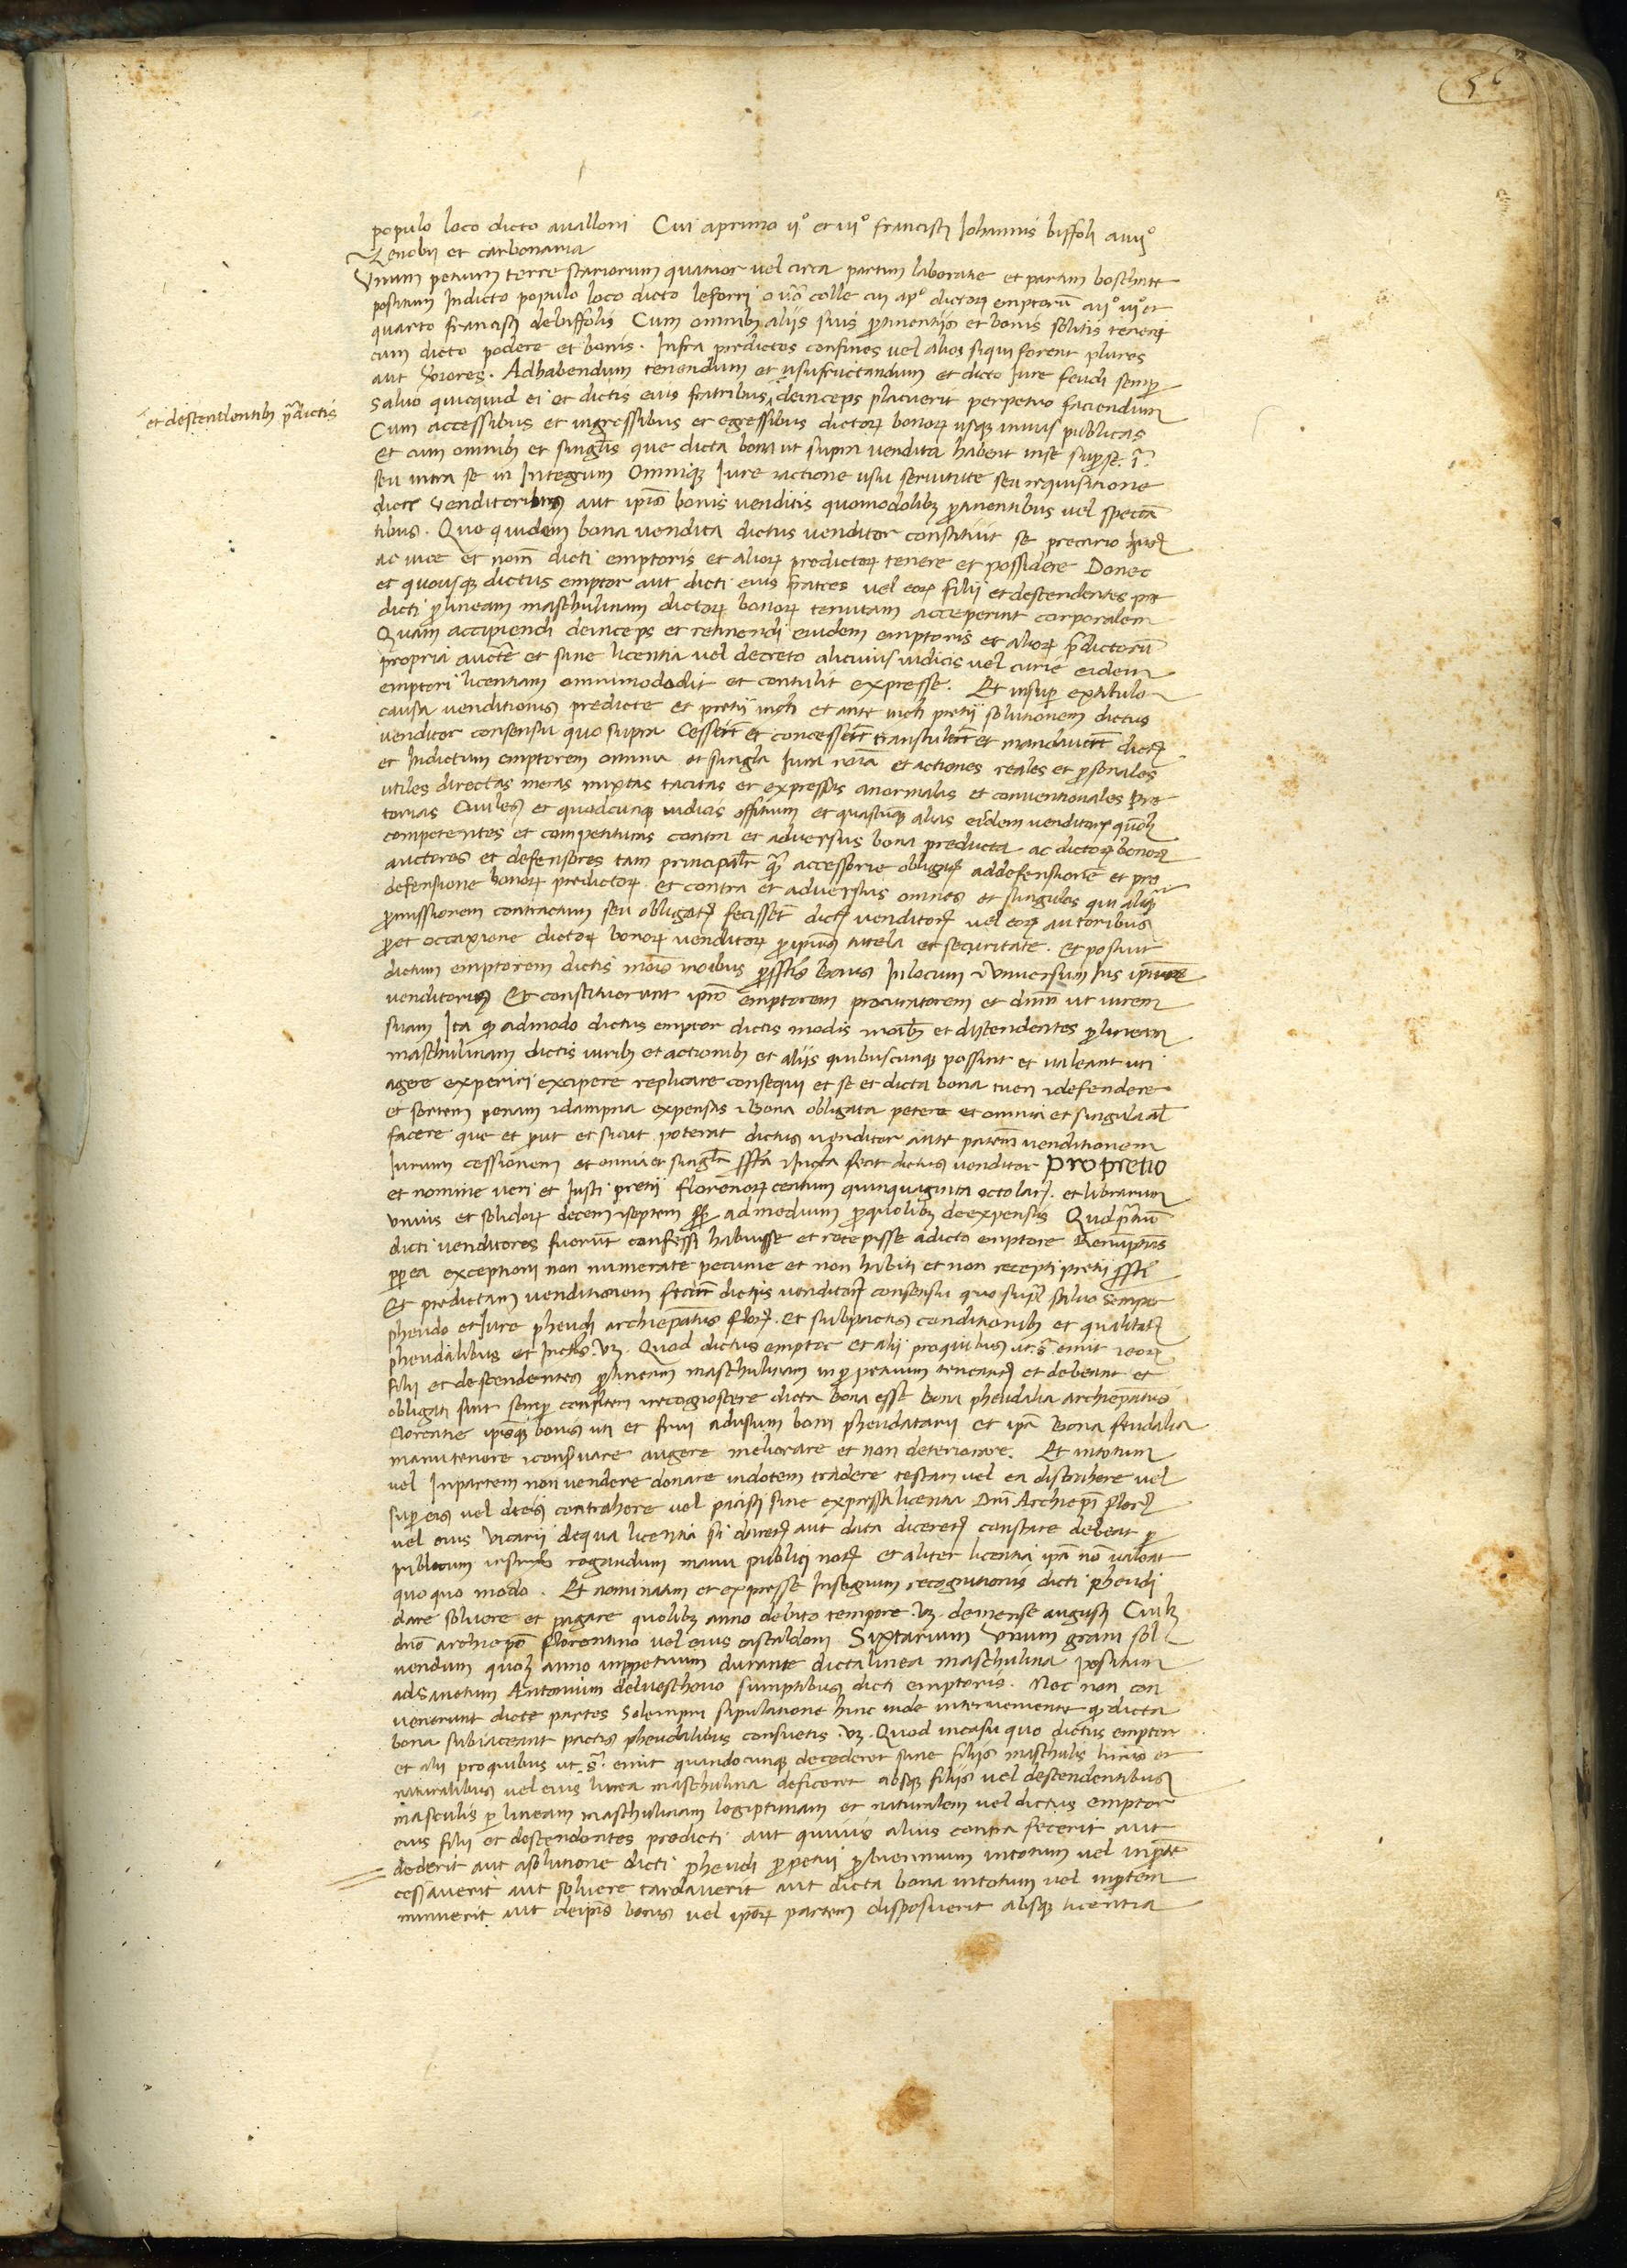 56
populo loco dicto avalloni Cui a primo ii° et iii° francisci Johannis biffoli a iiij°
Zenobij et carbonaria
Unum petium terre stariorum quatuor vel circa partim laborate et partim boschate
positum Indicto populo loco dicto leforri o vo colle cui a p° dictorum emptorum a ij° iij° et
quarto francisci debiffolis Cum omnibus aliis suis pertinentijs et bonis solitis teneri
cum dicto podere et bonis . Infra predictos confines vel alios siqui forent plures
aut veriores . Adhabendum tenendum et usufructandum et dicto Iure feudi semper
salvo quicquid ei et dictis eius fratribus deinceps placuerit perpetuo faciendum
et descendentibus predictis
Cum accessibus et ingressibus et egressibus dictorum bonorum usque inuias publicas
et cum omnibus et singulis que dicta bona ut supra vendita habent inse super se
seu intra se in Integrum Omnique Iure et actione usu servitute seu requisitione
dictis venditoribus aut ipsis bonis venditis quomodolibet pertinentibus vel spectan
tibus . Que quidem bona vendita dictus venditor constituit se precario
ac vice et nomine dicti emptoris et aliorum predictorum tenere et possidere Donec
et quousque dictus emptor aut dicti eius fratres vel eorum filii et descendentes pre
dicti per lineam maschulinam dictorum bonorum tenutam acceperint corporalem
Quam accipiendi deinceps et retinendi eiusdem emptoris et aliorum predictorum
propria auctoritate et sine licentia vel decreto alicuius iudicis vel curie eidem
emptori licentiam omnimodo dedit et contulit expresse . Et insuper ex titulo
causa venditionis predicte et pretii infrascripti et ante infrascripti pretii solutionem dictus
venditor consensu quo supra Cesserunt et concesserunt transtulerunt et mandaverunt dicto
et Indictum emptorem omnia et singula Iura nomina et actiones reales et personales
utiles directas meras mixtas tacitas et expressas anormalas et conventionales pre
torias Civiles et quodcunque iudicis offitium et quascunque alias eidem venditori quomodolibet
competentes et competituras contra et adversus bona predicta ac dictorum bonorum
auctores et defensores tam principaliter quam accessorie obligatos addefensionem et pro
defensione bonorum predictorum et contra et adversus omnes et singulos qui aliquam
promissionem contractum seu obligationem fecissent dictis venditoribus vel eorum autoribus
pro et occaxione dictorum bonorum venditorum pro ipsius tutela et securitate . et posuit
dictum emptorem dictis modis et nominibus Inlocum et Universum Ius
venditoris Et constituerunt ipsum emptorem procuratorem et dominum ut in rem
suam Ita quod admodo dictus emptor dictis modis nominibus et discendentes per lineam
maschulinam dictis iuribus et actionibus et aliis quibuscunque possint et valeant uti
agere experiri excipere replicare consequi et se et dicta bona tueri et defendere
et sortem penam et dampna expensas et Bona obligata petere et omnia et singula alia
facere que et prout et sicut poterat dictus venditor ante presentem venditionem
Iurium cessionem et omnia et singula suprascripta et Infrascripta fecit dictus venditor pro pretio
et nomine veri et Iusti pretii florenorum centum quinquaginta octo largorum et librarum
unius et solidorum decem et septem ad medium pro quolibet deexpensis Quod pretium
dicti venditores fuerunt confessi habuisse et recepisse adicto emptore Renumptians
propterea exceptioni non numerate pecunie et non habiti et non recepti pretii suprascripti
Et predictam venditionem fecerunt dictis venditores consensu quo supra salvo semper
pheudo et Iure pheudi archiepiscopatus florentini . et sub pactis conditionibus et qualitatibus
pheudalibus et Infrascriptis . vz . Quod dictus emptor et alii proquibus ut supra emit et eorum
filii et descendentes per lineam maschulinam in perpetuum teneantur et debeant et
obligati sint semper confiteri et recognoscere dicta bona esse bona pheudalia archiepiscopatus
florentie ipsisque bonis uti et frui adusum boni pheudatarii et ipsa Bona feudalia
manutenere et conservare augere meliorare et non deteriorare . Et intotum
vel Inpartem non vendere donare indotem tradere testari vel ea distrahere vel
super eis vel deeis contrahere vel pacisci sine expressa licentia Domini Archiepiscopi florentini
vel eius vicarii dequa licentia si daretur aut data diceretur constare debeat per
publicum instrumentum rogandum manu publici notarii et aliter licentia ipsa non valeat
quo quo modo . Et nominatim et expresse Insignum recognitionis dicti pheudi
dare solvere et pagare quolibet anno debito tempore . vz . demense augusti Cuilibet
domino archiepiscopo florentino vel eius castaldoni Sixtarium Unum grani sol
vendum quolibet anno inperpetuum durante dicta linea maschulina positum
adSanctum Antonium delveschovo sumptibus dicti emptoris . Nec non con
venerunt dicte partes Solempni stipulatione hinc inde interveniente quod dicta
bona subiaceant pactis pheudalibus consuetis . vz . Quod incasu quo dictus emptor
et alii proquibus ut supra emit quandocunque decederet sine filiis maschulis legitimis et
naturalibus vel eius linea maschulina deficeret absque filiis vel descendentibus
masculis per lineam maschulinam legiptimam et naturalem vel dictus emptor
eius filii et descendentes predicti aut quivis alius contra fecerit aut
dederit aut asolutione dicti pheudi perpetui per biennium intotum vel inparte
cessaverit aut solvere tardaverit aut dicta bona intotum vel inpartem
minuerit aut deipsis bonis vel ipsorum partem disposuerit absque licentia